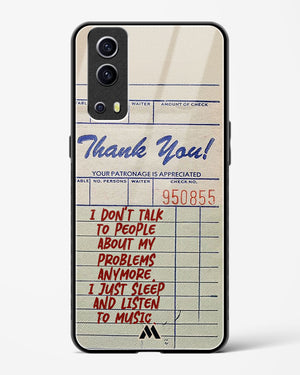 ABLE WAITER AMOUNT OF CHECK
Thank You!
YOUR PATRONAGE IS APPRECIATED
ABLE NO. PERSONS WAITER CHECK NO.
950855
I DON'T TALK
TO PEOPLE
ABOUT MY
PROBLEMS
ANYMORE.
I JUST SLEEP
AND LISTEN
TO MUSIC